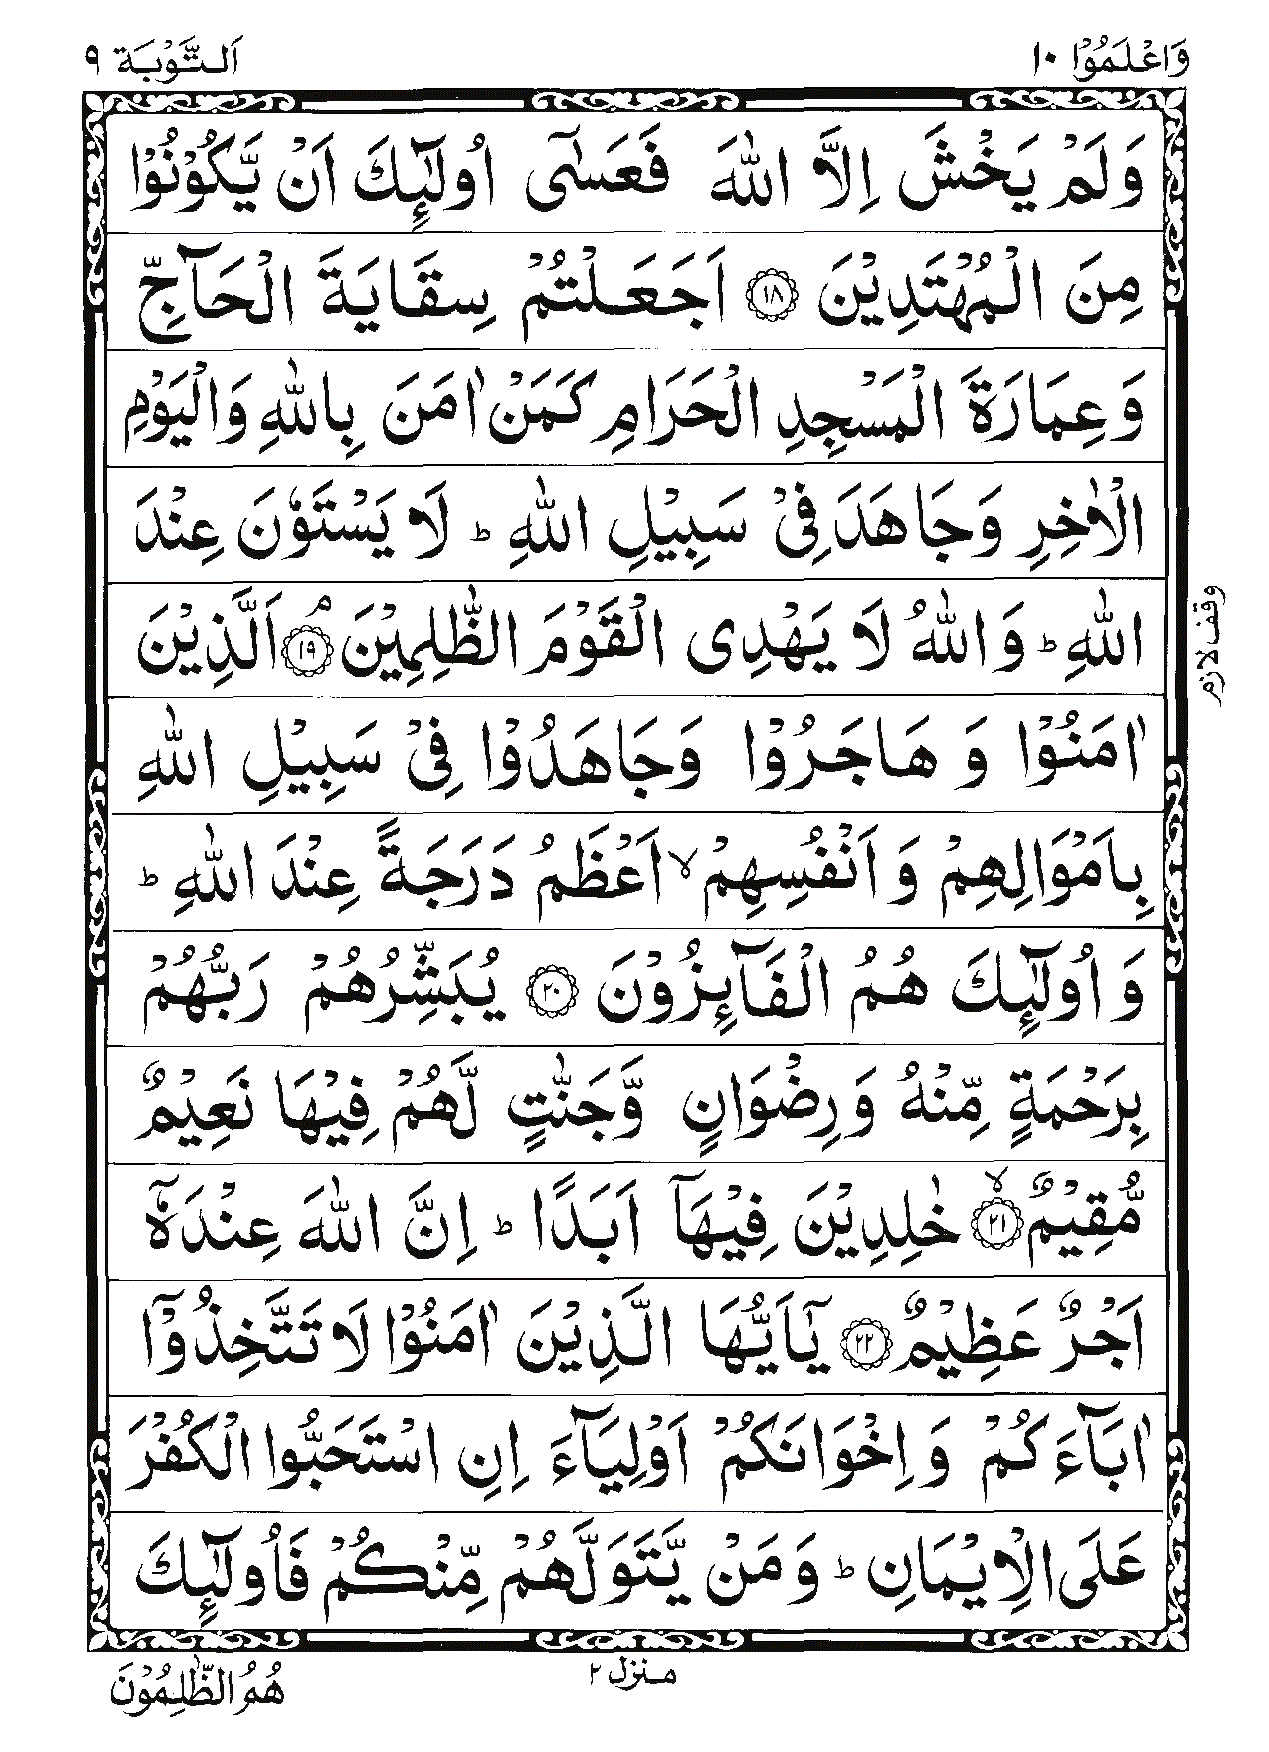 وَاعْلَمُوْۤا ١٠
اَلتَّوْبَة ٩
وَلَمْ يَخْشَ اِلَّا اللّٰهَ فَعَسٰٓى اُولٰٓئِكَ اَنْ يَّكُوْنُوْا
مِنَ الْمُهْتَدِيْنَ ١٨ اَجَعَلْتُمْ سِقَايَةَ الْحَآجِّ
وَعِمَارَةَ الْمَسْجِدِ الْحَرَامِ كَمَنْ اٰمَنَ بِاللّٰهِ وَالْيَوْمِ
الْاٰخِرِ وَجَاهَدَ فِىْ سَبِيْلِ اللّٰهِ ؕ لَا يَسْتَوٗنَ عِنْدَ
اللّٰهِ ؕ وَاللّٰهُ لَا يَهْدِى الْقَوْمَ الظّٰلِمِيْنَ ۘ ١٩ اَلَّذِيْنَ
وقف لازم
اٰمَنُوْا وَ هَاجَرُوْا وَجَاهَدُوْا فِىْ سَبِيْلِ اللّٰهِ
بِاَمْوَالِهِمْ وَ اَنْفُسِهِمْ ۙ اَعْظَمُ دَرَجَةً عِنْدَ اللّٰهِ ؕ
وَ اُولٰٓئِكَ هُمُ الْفَآئِزُوْنَ ٢٠ يُبَشِّرُهُمْ رَبُّهُمْ
بِرَحْمَةٍ مِّنْهُ وَ رِضْوَانٍ وَّجَنّٰتٍ لَّهُمْ فِيْهَا نَعِيْمٌ
مُّقِيْمٌ ۙ ٢١ خٰلِدِيْنَ فِيْهَآ اَبَدًا ؕ اِنَّ اللّٰهَ عِنْدَهٗۤ
اَجْرٌ عَظِيْمٌ ٢٢ يٰۤاَيُّهَا الَّذِيْنَ اٰمَنُوْا لَا تَتَّخِذُوْۤا
اٰبَآءَكُمْ وَ اِخْوَانَكُمْ اَوْلِيَآءَ اِنِ اسْتَحَبُّوا الْكُفْرَ
عَلَى الْاِيْمَانِ ؕ وَ مَنْ يَّتَوَلَّهُمْ مِّنْكُمْ فَاُولٰٓئِكَ
منزل ٢
هُمُ الظّٰلِمُوْنَ